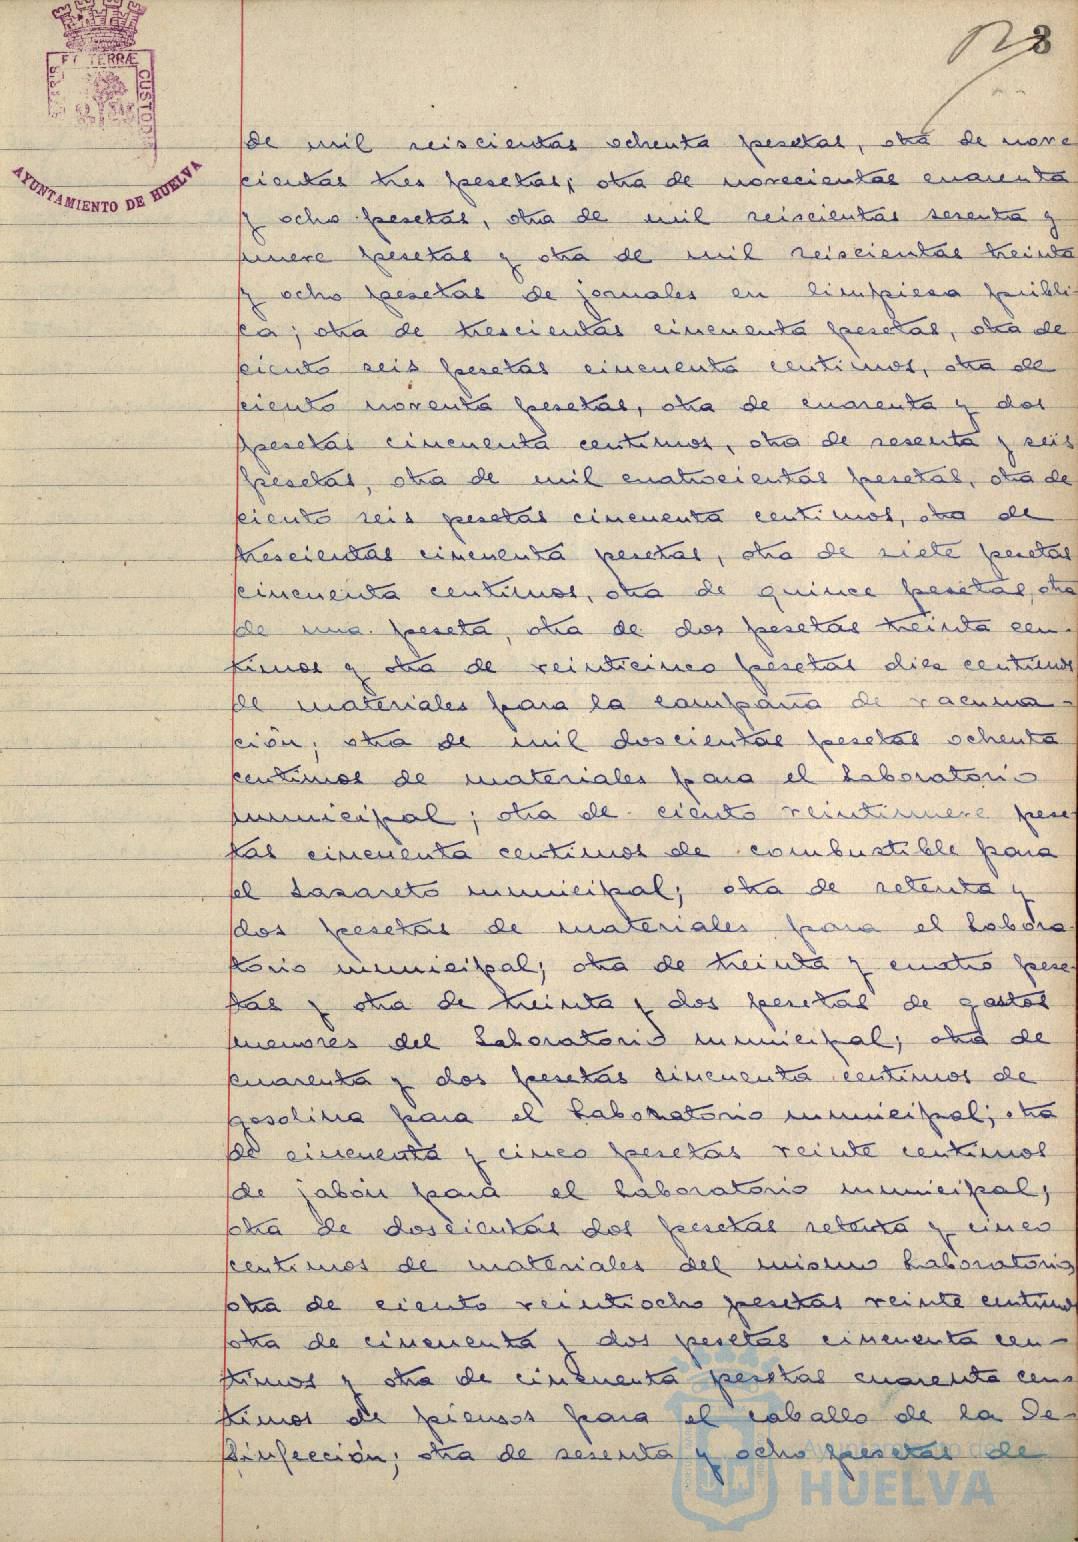 3
ET TERRÆ
CUSTODIA
AYUNTAMIENTO DE HUELVA
de mil seiscientas ochenta pesetas, otra de nove
cientas tres pesetas; otra de novecientas cuarenta
y ocho pesetas, otra de mil seiscientas sesenta y
nueve pesetas y otra de mil seiscientas treinta
y ocho pesetas de jornales en limpieza públi-
ca; otra de trescientas cincuenta pesetas, otra de
ciento seis pesetas cincuenta centimos, otra de
ciento noventa pesetas, otra de cuarenta y dos
pesetas cincuenta centimos, otra de sesenta y seis
pesetas, otra de mil cuatrocientas pesetas, otra de
ciento seis pesetas cincuenta centimos, otra de
trescientas cincuenta pesetas, otra de siete pesetas
cincuenta centimos, otra de quince pesetas, otra
de una peseta, otra de dos pesetas treinta cen-
timos y otra de veinticinco pesetas diez centimos
de materiales para la campaña de vacuna-
ción; otra de mil doscientas pesetas ochenta
centimos de materiales para el Laboratorio
municipal; otra de ciento veintinueve pese-
tas cincuenta centimos de combustible para
el Lazareto municipal; otra de setenta y
dos pesetas de materiales para el Labora-
torio municipal; otra de treinta y cuatro pese-
tas y otra de treinta y dos pesetas de gastos
menores del Laboratorio municipal; otra de
cuarenta y dos pesetas cincuenta centimos de
gasolina para el Laboratorio municipal; otra
de cincuenta y cinco pesetas veinte centimos
de jabón para el Laboratorio municipal;
otra de doscientas dos pesetas setenta y cinco
centimos de materiales del mismo Laboratorio,
otra de ciento veintiocho pesetas veinte centimos
otra de cincuenta y dos pesetas cincuenta cen-
timos y otra de cincuenta pesetas cuarenta cen-
timos de piensos para el caballo de la De-
sinfección; otra de sesenta y ocho pesetas de
Ayuntamiento de
HUELVA